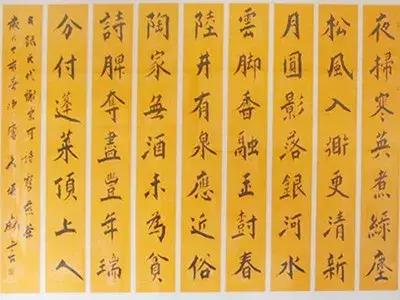 夜掃寒英煮綠塵
松風入鼎更清新
月圓影落銀河水
雲脚香融玉樹春
陸井有泉應近俗
陶家無酒未為貧
詩脾奪盡豐年瑞
分付蓬萊頂上人
錄元代謝宗可詩雪煎茶